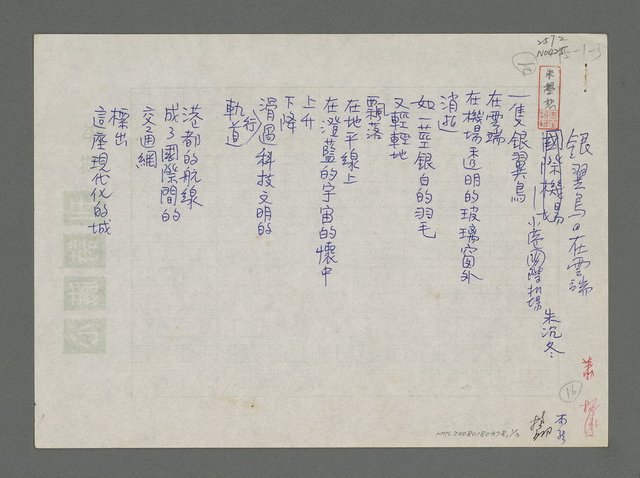 銀翼鳥在雲端
國際機場
——小港國際机場
朱沉冬
一隻銀翼鳥
在雲端
在機場透明的玻璃窗外
消逝
如一莖銀白的羽毛
又輕輕地
飄落
在地平線上
在澄藍的宇宙的懷中
上升
下降
滑過科技文明的
軌道
港都的航線
成了國際間的
交通網
標出
這座現代化的城
16
NMTL20080180878,1/3